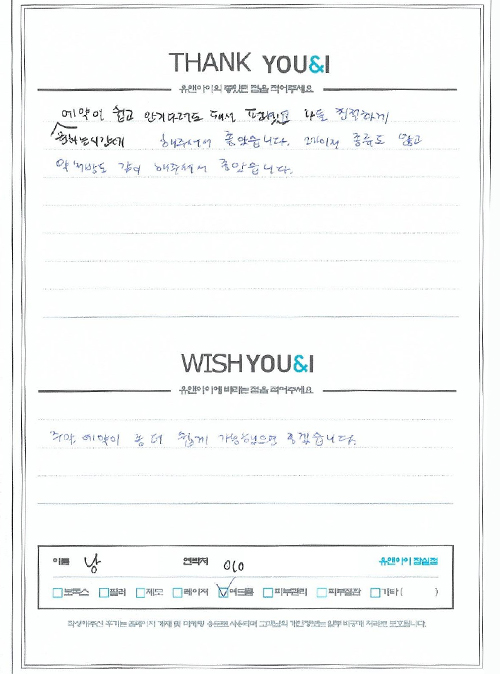 THANK YOU&I
유앤아이의 좋았던 점을 적어주세요
예약이 쉽고 안기다려도 돼서
원하는시간에 해주셔서 좋았습니다. 레이저 종류도 많고
약처방도 같이 해주셔서 좋았습니다.
WISH YOU&I
유앤아이에 바라는 점을 적어주세요
주말 예약이 좀 더 쉽게 가능했으면 좋겠습니다.
이름 낭 연락처 010 유앤아이 잠실점
보톡스 필러 제모 레이저 여드름 피부관리 피부질환 기타 ( )
작성해주신 후기는 홈페이지 게재 및 마케팅 용도로 사용되며 고객님의 개인정보는 일부 비공개 처리로 보호됩니다.